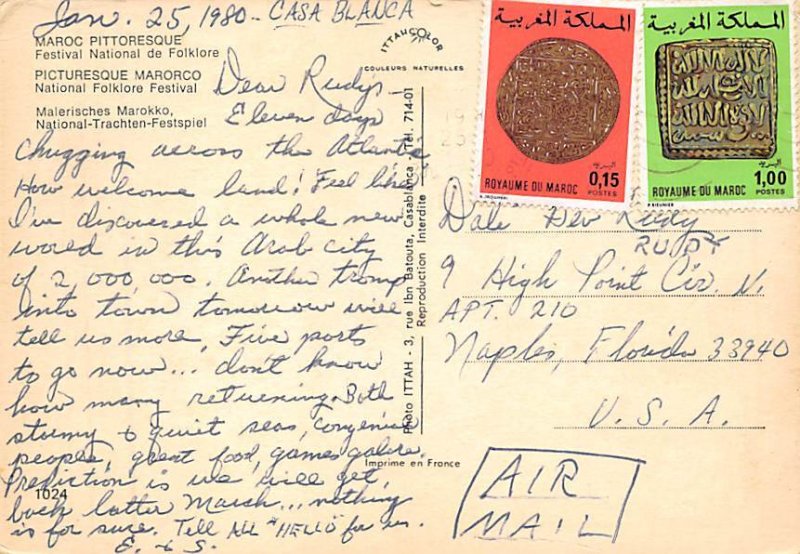 Jan. 25, 1980 - CASA BLANCA
MAROC PITTORESQUE
Festival National de Folklore
PICTURESQUE MARORCO
National Folklore Festival
Malerisches Marokko,
National-Trachten-Festspiel
ITTAHCOLOR
COULEURS NATURELLES
Dear Rudys -
Eleven days
chugging across the Atlantic
How welcome land! Feel like
I've discovered a whole new
world in this Arab city
of 2,000,000. Another tromp
into town tomorrow will
tell us more. Five ports
to go now... don't know
how many returning. Both
stormy & quiet seas, congenial
people, great food, games galore.
Prediction is we will get
back latter March... nothing
is for sure. Tell ALL "HELLO" for us.
E. & S.
1024
Photo ITTAH - 3, rue Ibn Batouta, Casablanca - Tél. 714-01
Reproduction Interdite
Imprime en France
المملكة المغربية
0,15
البريد
ROYAUME DU MAROC POSTES
المملكة المغربية
1,00
البريد
ROYAUME DU MAROC POSTES
Dale Rudy
RUDY
9 High Point Cir. N.
APT. 210
Naples, Florida 33940
U.S.A.
AIR
MAIL